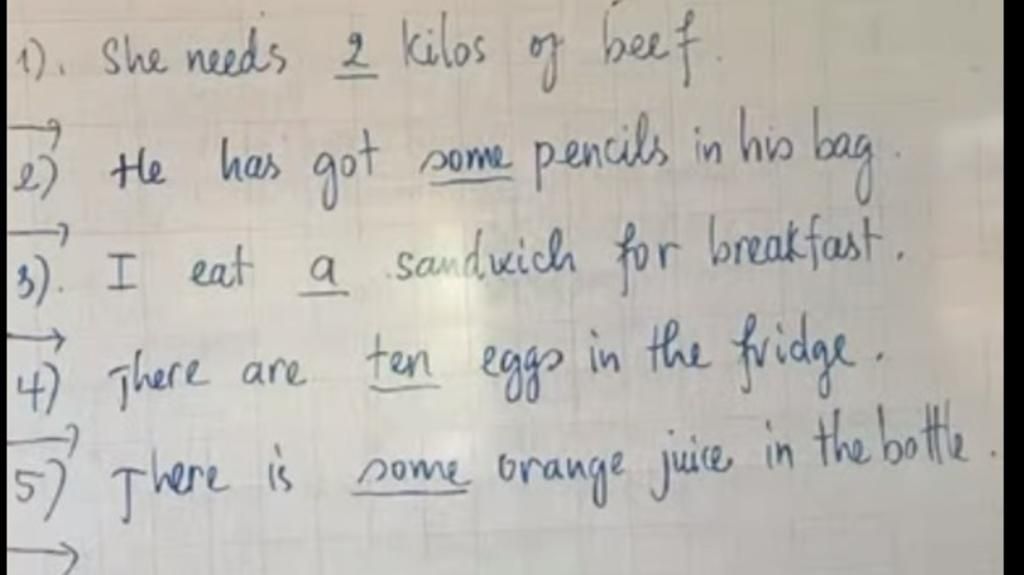 1). She needs 2 kilos of beef.
→
2) He has got some pencils in his bag.
→
3). I eat a sandwich for breakfast.
→
4) There are ten eggs in the fridge.
→
5) There is some orange juice in the bottle.
→